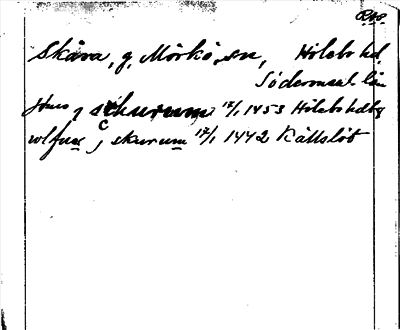 RAp.
Skåra, g, Mörkö sn, Hölebo hd,
Södermanl län
Jöns j schurum 17/1 1453 Hölebo hdbg
wlfuæ j skurum 17/1 1442 Källslöt